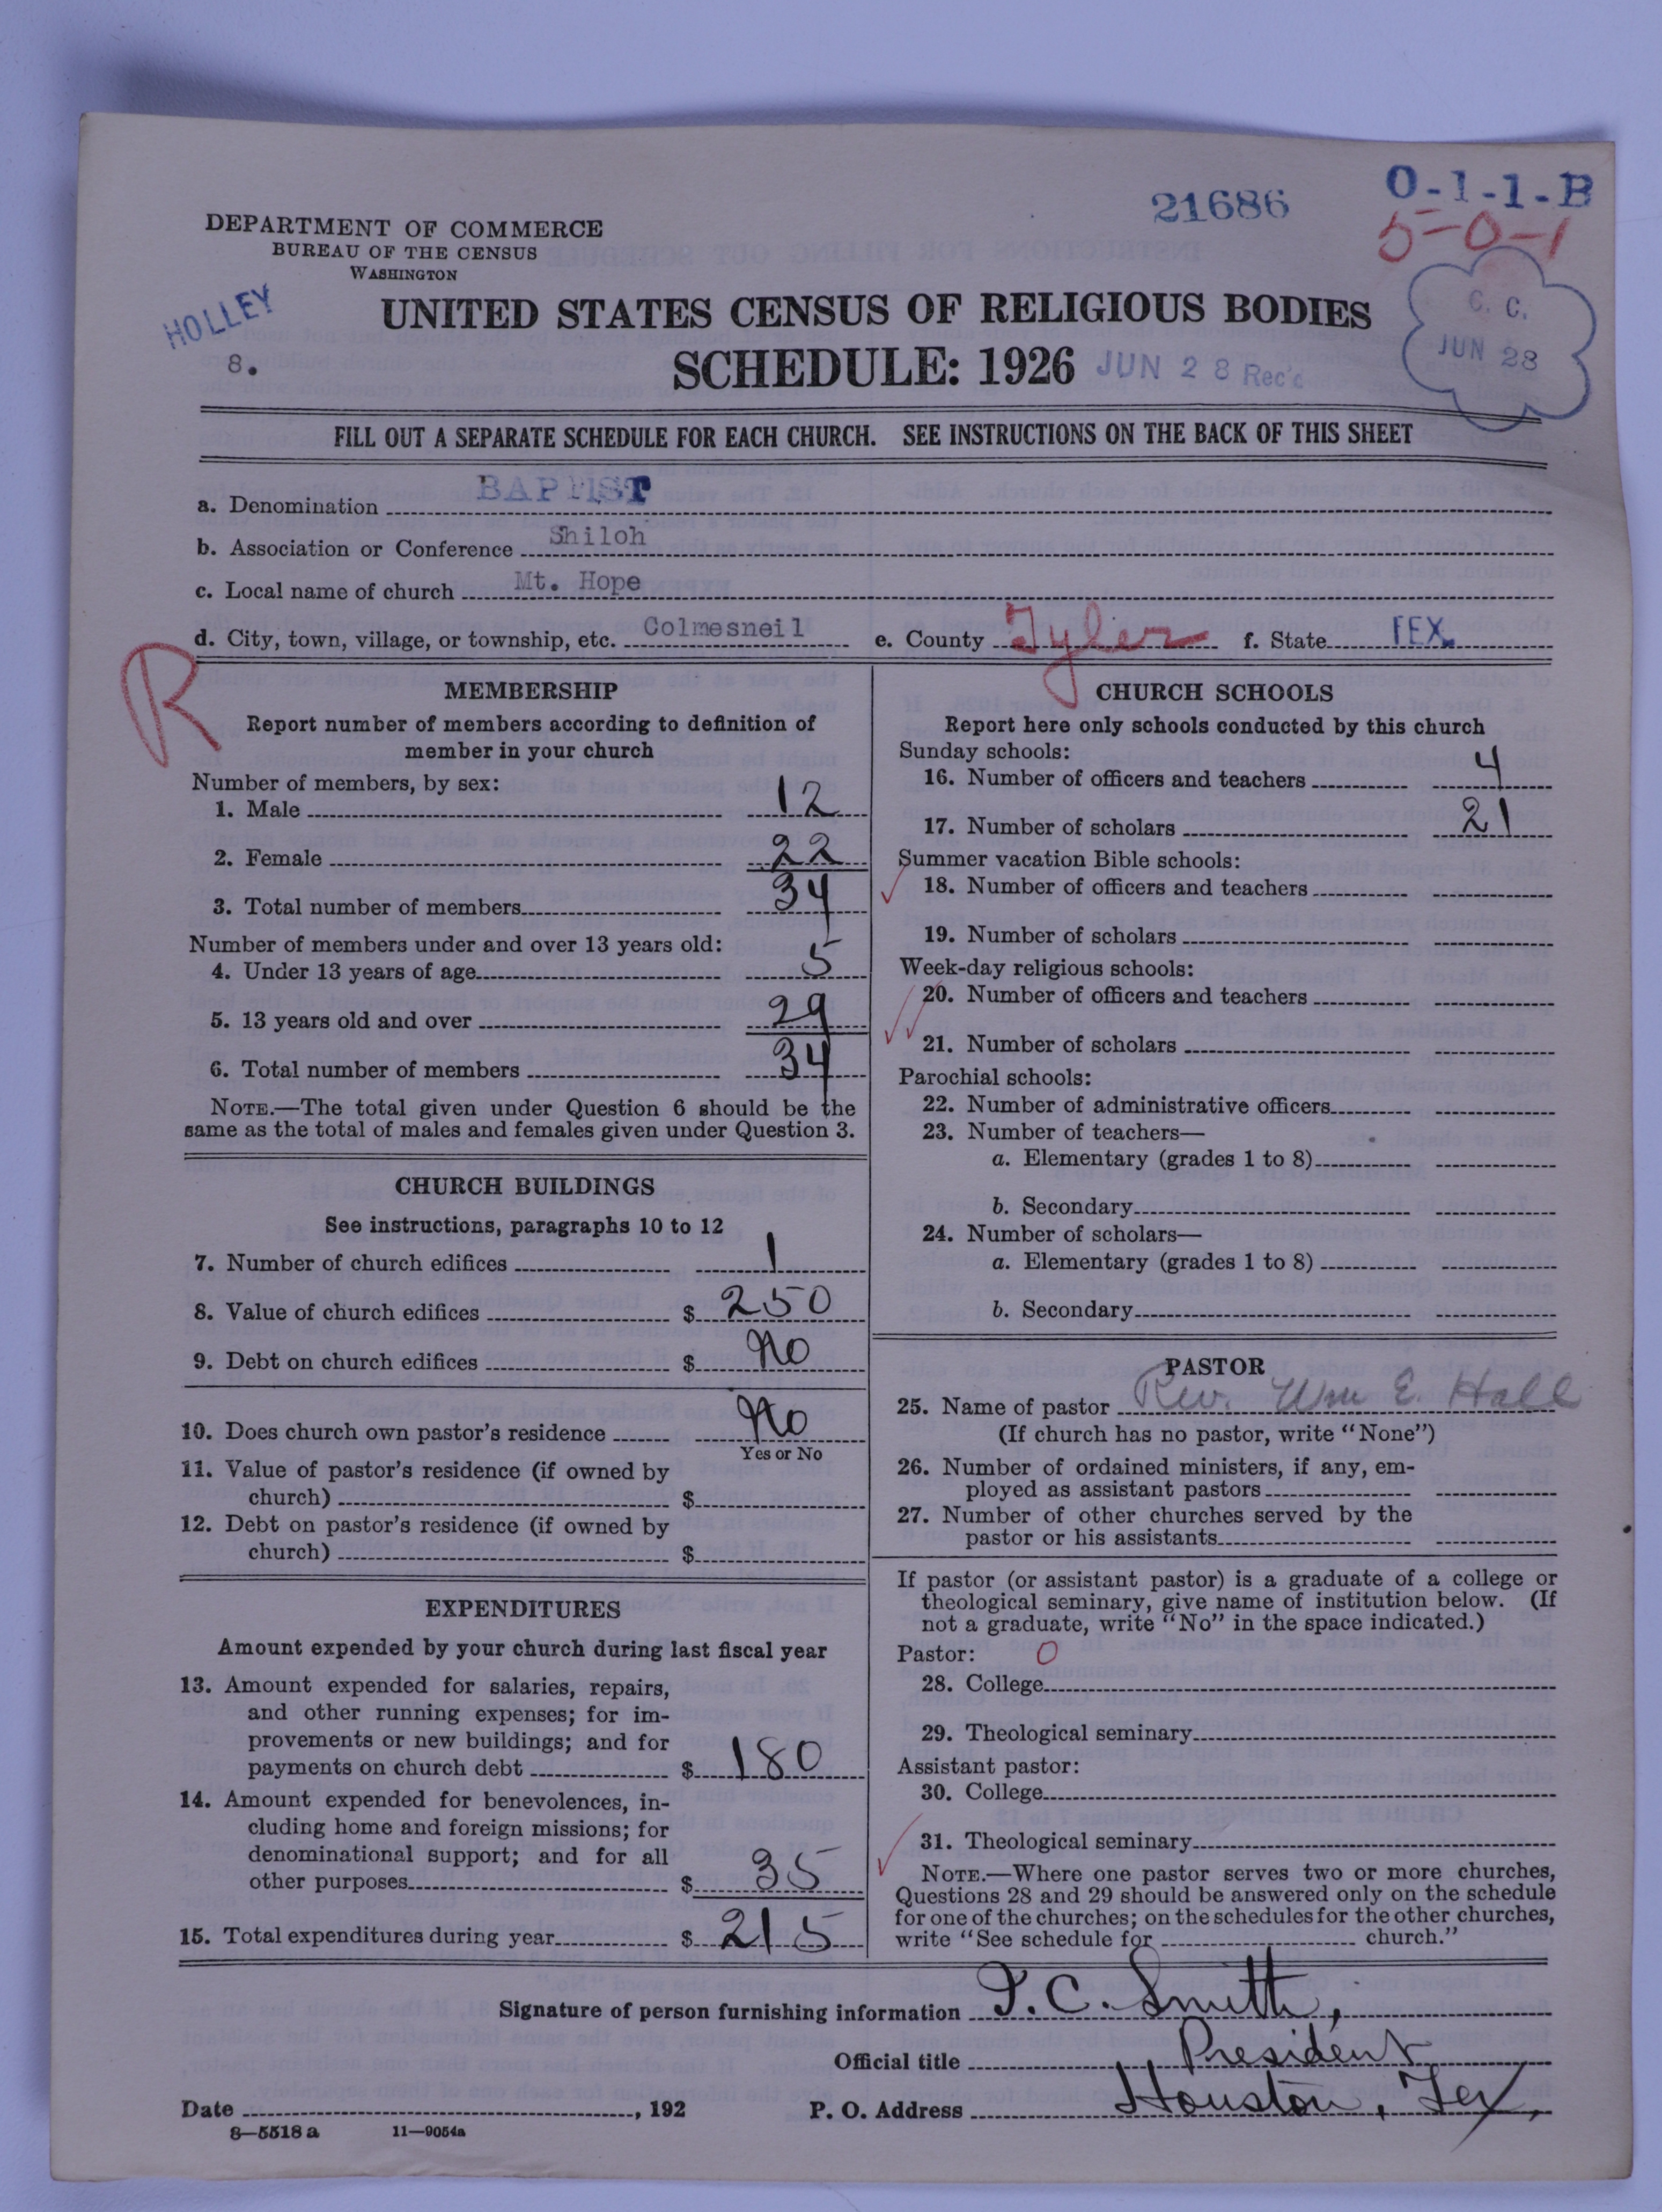 21686
O-1-1-B
5-0-1
DEPARTMENT OF COMMERCE
BUREAU OF THE CENSUS
WASHINGTON
HOLLEY
8.
UNITED STATES CENSUS OF RELIGIOUS BODIES
SCHEDULE: 1926 JUN 28 Rec'd
C. C.
JUN 28
FILL OUT A SEPARATE SCHEDULE FOR EACH CHURCH. SEE INSTRUCTIONS ON THE BACK OF THIS SHEET
a. Denomination BAPTIST
b. Association or Conference Shiloh
c. Local name of church Mt. Hope
d. City, town, village, or township, etc. Colmesneil e. County Tyler f. State TEX.
R
MEMBERSHIP
Report number of members according to definition of
member in your church
Number of members, by sex:
1. Male 12
2. Female 22
3. Total number of members 34
Number of members under and over 13 years old:
4. Under 13 years of age 5
5. 13 years old and over 29
6. Total number of members 34
NOTE.—The total given under Question 6 should be the
same as the total of males and females given under Question 3.
CHURCH BUILDINGS
See instructions, paragraphs 10 to 12
7. Number of church edifices 1
8. Value of church edifices $ 250
9. Debt on church edifices $ No
10. Does church own pastor's residence No
Yes or No
11. Value of pastor's residence (if owned by
church) $
12. Debt on pastor's residence (if owned by
church) $
EXPENDITURES
Amount expended by your church during last fiscal year
13. Amount expended for salaries, repairs,
and other running expenses; for im-
provements or new buildings; and for
payments on church debt $ 180
14. Amount expended for benevolences, in-
cluding home and foreign missions; for
denominational support; and for all
other purposes $ 35
15. Total expenditures during year $ 215
CHURCH SCHOOLS
Report here only schools conducted by this church
Sunday schools:
16. Number of officers and teachers 4
17. Number of scholars 21
Summer vacation Bible schools:
18. Number of officers and teachers
19. Number of scholars
Week-day religious schools:
20. Number of officers and teachers
21. Number of scholars
Parochial schools:
22. Number of administrative officers
23. Number of teachers—
a. Elementary (grades 1 to 8)
b. Secondary
24. Number of scholars—
a. Elementary (grades 1 to 8)
b. Secondary
PASTOR
25. Name of pastor Rev. Wm E. Hall
(If church has no pastor, write "None")
26. Number of ordained ministers, if any, em-
ployed as assistant pastors
27. Number of other churches served by the
pastor or his assistants
If pastor (or assistant pastor) is a graduate of a college or
theological seminary, give name of institution below. (If
not a graduate, write "No" in the space indicated.)
Pastor: O
28. College
29. Theological seminary
Assistant pastor:
30. College
31. Theological seminary
NOTE.—Where one pastor serves two or more churches,
Questions 28 and 29 should be answered only on the schedule
for one of the churches; on the schedules for the other churches,
write "See schedule for church."
Signature of person furnishing information I. C. Smith,
Official title President
Date , 192 P. O. Address Houston, Tex,
8—5518 a 11—9054a